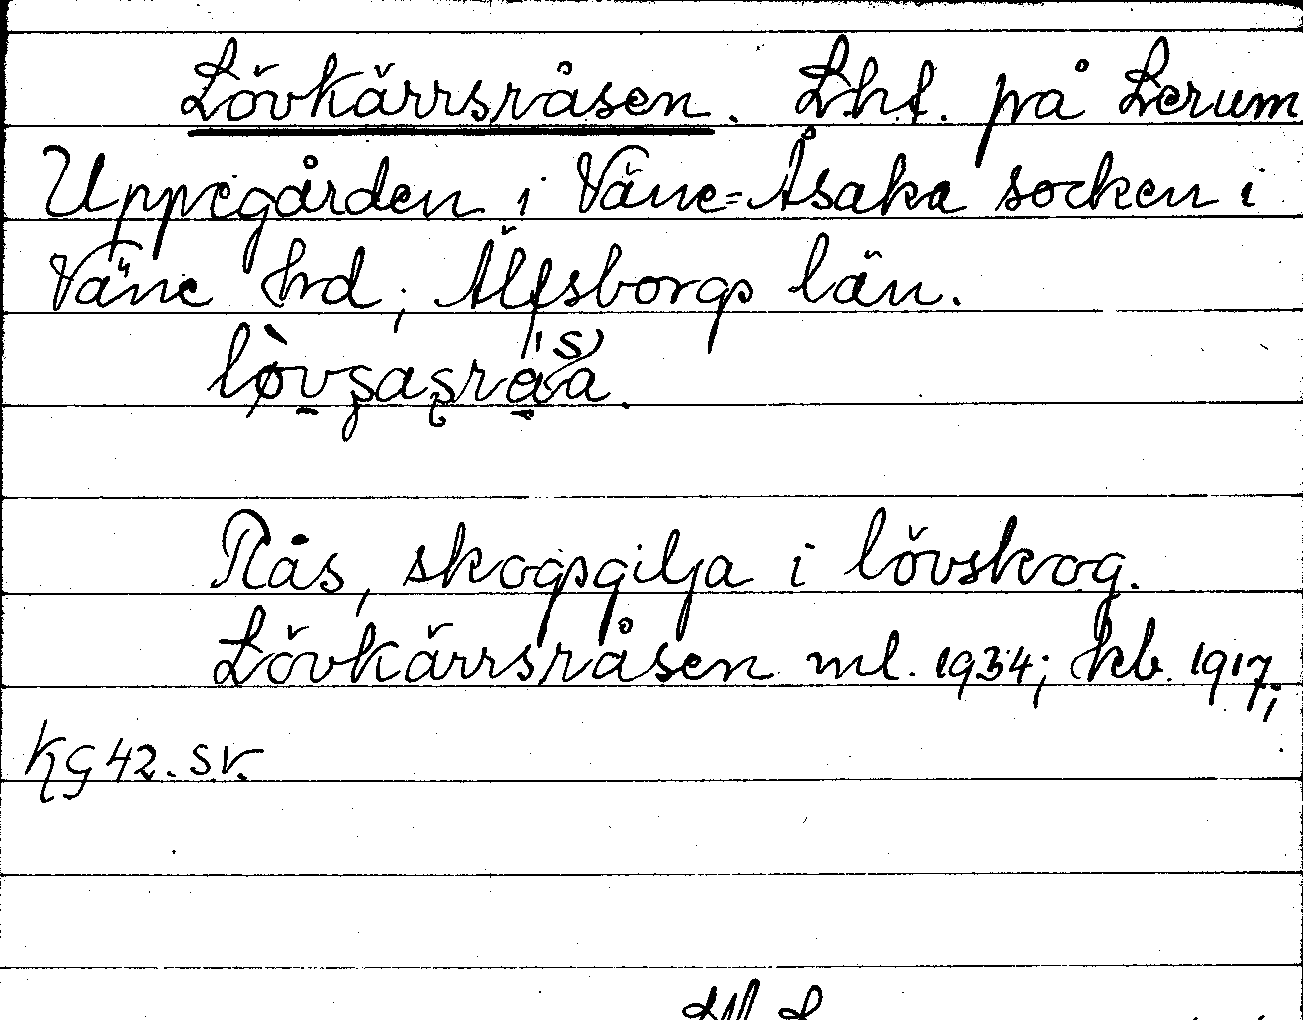 Lövkärrsråsen. Lht. på Lerum
Uppegården i Väne-Åsaka socken i
Väne hrd, Älfsborgs län.
Rås, skogsgilja i lövskog.
Lövkärrsråsen ml. 1934; kb. 1917;
KG 42. s.v.